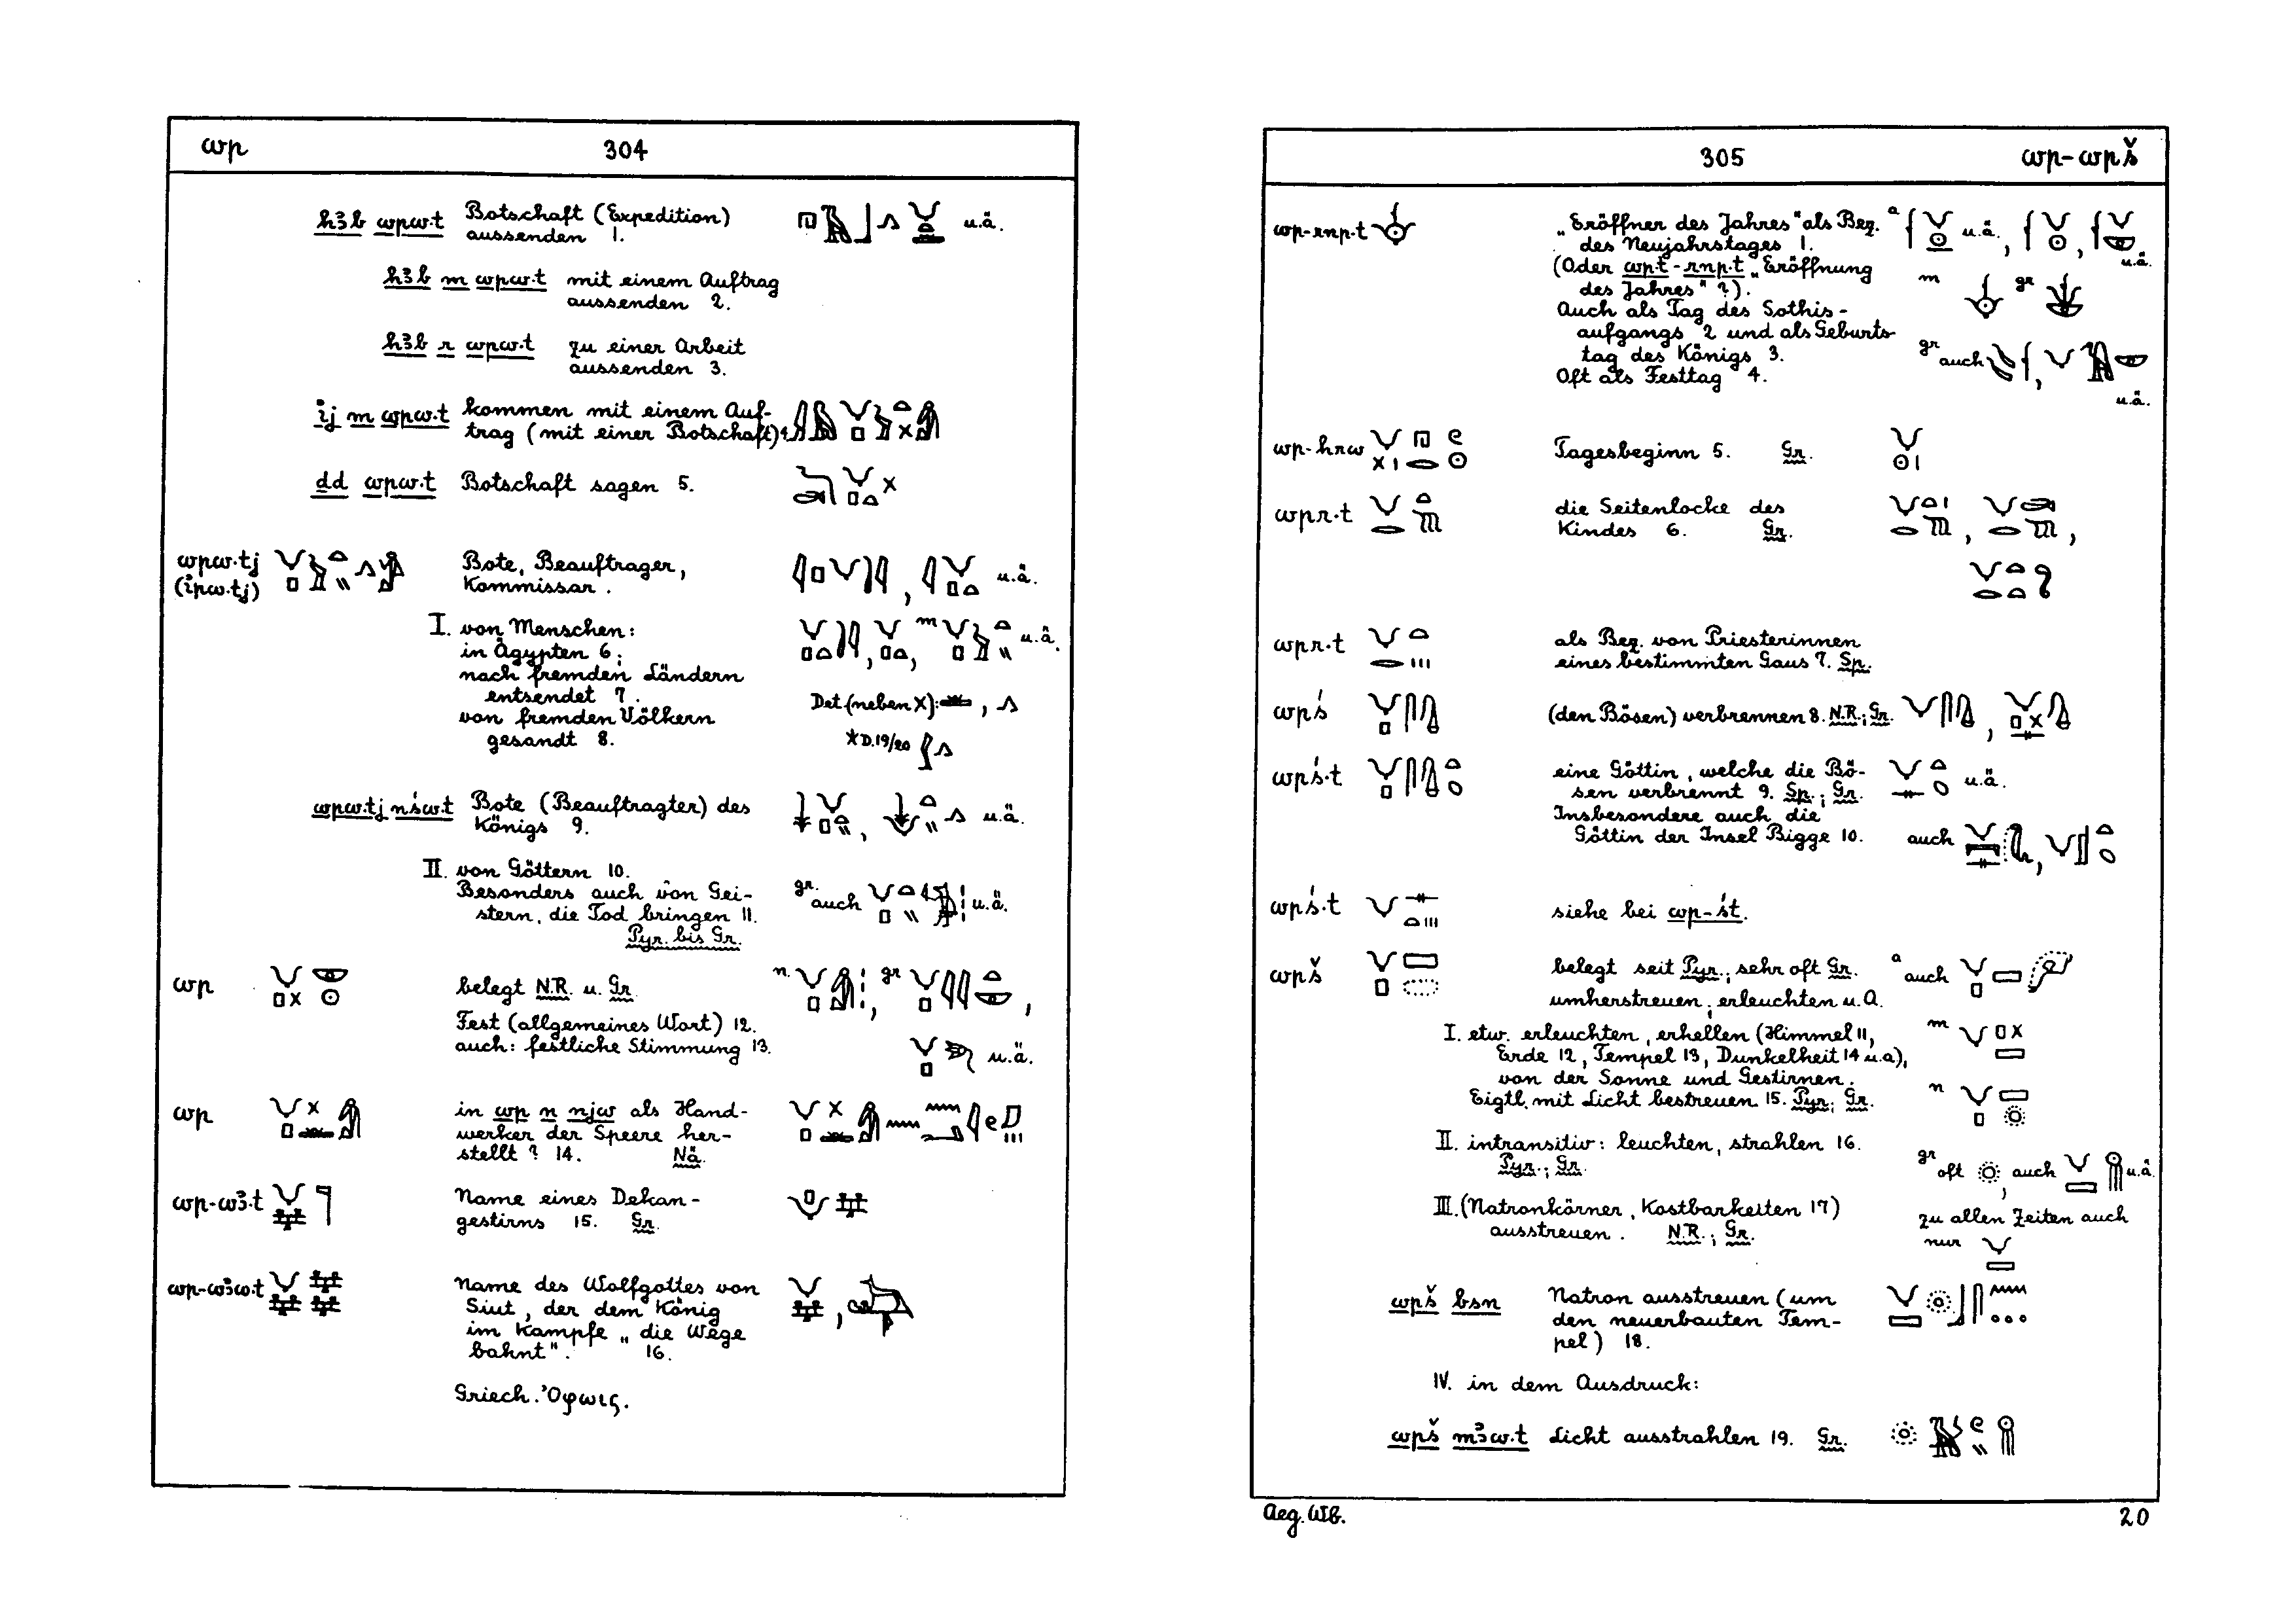 wp 304
hꜣb wpw.t Botschaft (Expedition)
aussenden 1. u.ä.
hꜣb m wpw.t mit einem Auftrag
aussenden 2.
hꜣb r wpw.t zu einer Arbeit
aussenden 3.
ij m wpw.t kommen mit einem Auf-
trag (mit einer Botschaft) 4.
ḏd wpw.t Botschaft sagen 5.
wpw.tj Bote, Beauftrager,
(ipw.tj) Kommissar. u.ä.
I. von Menschen: m u.ä.
in Ägypten 6;
nach fremden Ländern
entsendet 7. Det (neben X):
von fremden Völkern
gesandt 8. *D.19/20
wpw.tj nśw.t Bote (Beauftragter) des
Königs 9. u.ä.
II. von Göttern 10.
Besonders auch von Gei- gr. auch u.ä.
stern, die Tod bringen 11.
Pyr. bis Gr.
wp belegt N.R. u. Gr. n. gr
Fest (allgemeines Wort) 12.
auch: festliche Stimmung 13. u.ä.
wp in wp n njw als Hand-
werker der Speere her-
stellt? 14. Nä.
wp-wꜣ.t Name eines Dekan-
gestirns 15. Gr.
wp-wꜣw.t Name des Wolfgottes von
Siut, der dem König
im Kampfe „die Wege
bahnt". 16.
Griech. Ὀφωις.
305 wp-wpš
wp-rnp.t „Eröffner des Jahres" als Bez. a
des Neujahrstages 1. u.ä.
(Oder wp.t-rnp.t „Eröffnung u.ä.
des Jahres"?). m gr
Auch als Tag des Sothis-
aufgangs 2 und als Geburts-
tag des Königs 3. gr auch
Oft als Festtag 4. u.ä.
wp-hrw Tagesbeginn 5. Gr.
wpr.t die Seitenlocke des
Kindes 6. Gr.
wpr.t als Bez. von Priesterinnen
eines bestimmten Gaus 7. Sp.
wpś (den Bösen) verbrennen 8. N.R.; Gr.
wpś.t eine Göttin, welche die Bö-
sen verbrennt 9. Sp.; Gr. u.ä.
Insbesondere auch die
Göttin der Insel Bigge 10. auch
wpś.t siehe bei wp-śt.
wpš belegt seit Pyr.; sehr oft Gr. a auch
umherstreuen; erleuchten u.A.
I. etw. erleuchten, erhellen (Himmel 11, m
Erde 12, Tempel 13, Dunkelheit 14 u.a),
von der Sonne und Gestirnen.
Eigtl. mit Licht bestreuen 15. Pyr; Gr. n
II. intransitiv: leuchten, strahlen 16.
Pyr.; Gr. gr oft , auch u.ä
III. (Natronkörner, Kostbarkeiten 17)
ausstreuen. N.R.; Gr. zu allen Zeiten auch
nur
wpš bsn Natron ausstreuen (um
den neuerbauten Tem-
pel) 18.
IV. in dem Ausdruck:
wpš mꜣw.t Licht ausstrahlen 19. Gr.
Aeg. Wb. 20